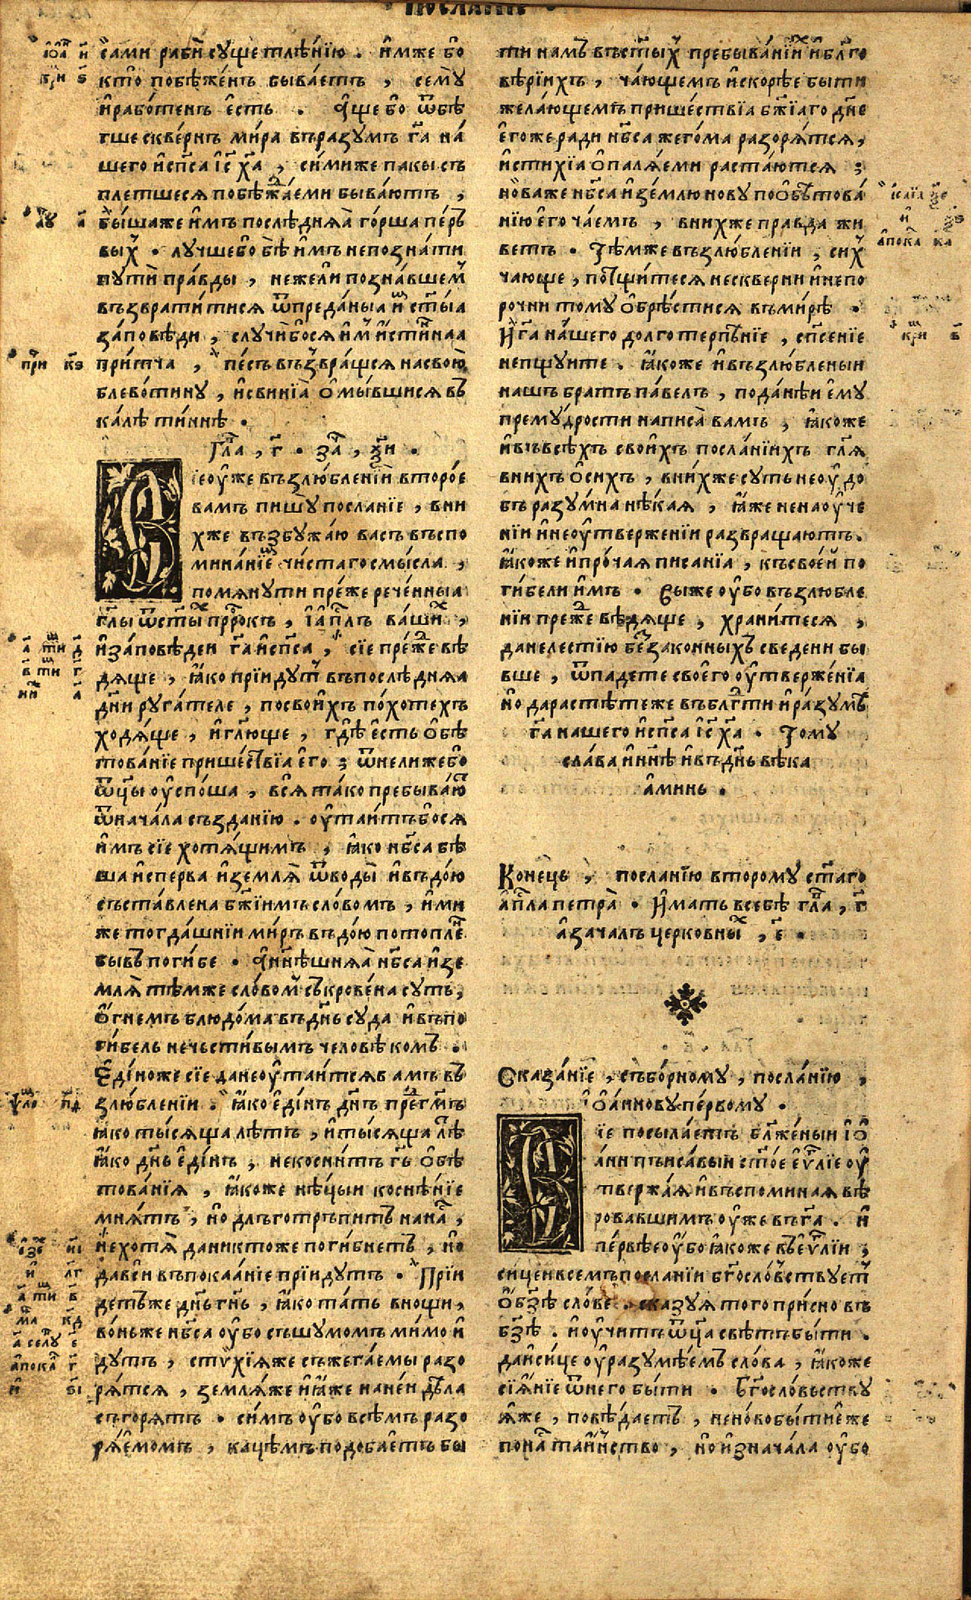 ПОСЛАНІЕ
сами раби суще тлѣнїю . имже бо
кто побѣженъ бываетъ , сему
и работенъ есть . Аще бо ѿбѣ
гше сквернъ мира въразумъ г҃а на
шего и сп҃са іс҃ х҃а , симиже пакы съ
плетшеся побѣжаеми бываютъ ,
быша же имъ послѣдняя горша перъ
вых . лучше бо бѣ имъ непознати
пути правды , нежели познавшем
възвратитися ѿпреданыа им ст҃ыа
заповѣди , случи бося им истиннаа
притча , песъ възвращся насвою
блевотину , и свинїа омывшися въ
калѣ тиннѣ .
Гла , г҃ . за , ѯ҃и .
Вїе оуже възлюбленїи второе
вамъ пишу посланїе , вни
хже възбужаю васъ въспо
минанїе чистаго смысла ,
помянути преже реченныа
гл҃ы ѿст҃ых пр҃рокъ , і ап҃лъ ваших ,
и заповѣдеи г҃а и сп҃са , сїе преже вѣ
дяще , яко прїидут въпослѣдняа
дн҃и ругателе , посвоихъ похотехъ
ходяще , и гл҃юще , гдѣ есть обѣ
тованїе пришествїа его ; ѿнели же бо
ѿц҃ы оуспоша , вся тако пребываю
ѿначала създанїю . оутаитъбося
имъ сїе хотящимъ , яко нб҃са бѣ
ша исперва и земля ѿводы и въдою
съставлена бж҃їимъ словомъ , ими
же тогдашнїи миръ въдою потопле
бывъ погибе . А нн҃ѣшняя нб҃са и зе
мля тѣмже словом съкровена суть ,
огнемъ блюдома въ дн҃ь суда и въпо
гибель нечестивымъ человѣкомъ .
Едіноже сїе да не оутаитсяв амъ въ
злюбленїи . яко едінъ дн҃ь пред г҃мъ
яко тысяща лѣтъ , и тысяща лѣ
яко дн҃ь едінъ ; некоснитъ г҃ь обѣ
тованїя , якоже нѣцыи коснѣнїе
мнятъ , но длъготръпитъ нанас ,
не хотя даниктоже погибнетъ , но
давси въпокаанїе прїидутъ . Прїи
детъже дн҃ь гн҃ь , яко тать внощи ,
воньже нб҃са оубо съшумомъ мимо и
дутъ , стихїяже съжегаемы разо
рятся , земляже и яже наней дѣла
съгорятъ . симъ оубо всѣмъ разо
ряемомъ , кацѣмъ подобаетъ бы
ти намъ въст҃ых пребыванїих и бл҃го
вѣрїихъ , чающемъ и скорѣе быти
желающемъ пришествїа бж҃їаго дн҃е
егоже ради нб҃са жегома разорятся ,
и стихїа опаляеми растаются ;
новаже нб҃са и землю нову пообѣтова
нїю его чаемъ , внихже правда жи
ветъ . Тѣмже възлюбленїи , сих
чающе , потщитеся нескверни и непо
рочни тому обрѣстися въмирѣ .
И г҃а нашего долго терпѣнїе , сп҃сенїе
непщуите . якоже и възлюбленыи
нашъ братъ павелъ , по данѣи ему
премудрости написа вамъ , якоже
и въ всѣхъ своихъ посланїихъ гл҃я
внихъ осихъ , внихже суть неоудо
бь разумна нѣкая , яже ненаоуче
нїи и неоутверженїи развращаютъ .
якоже и прочая писанїа , къ своеи по
гибели имъ . Выже оубо възлюбле
нїи преже вѣдяще , хранитеся ,
данелестїю беззаконныхъ сведени бы
вше , ѿпадете своего оутверженїа
но дарастѣтеже въбл҃гти и разумъ
г҃а нашего и сп҃са іс҃ х҃а . Тому
слава и нн҃ѣ и въ дн҃ь вѣка
аминь .
Конець , посланїю второму ст҃аго
ап҃ла петра . Имать всебѣ гл҃а , г҃
а зачалъ церковных , е҃ .
Сказанїе , съборному , посланїю ,
іоаннову первому .
Вїе посылаетъ бл҃женыи іо
аннъ писавыи ст҃ое еѵ҃лїе оу
твержая и въспоминая вѣ
ровавшимъ оуже въ г҃а . и
первѣе оубо якоже въ еѵ҃лїи ;
сице и всемъ посланїи бг҃ословствует
обз҃ѣ словѣ . сказуя того присно въ
бз҃ѣ . и оучитъ ѿц҃а свѣтъ быти .
да и сице оуразумѣемъ слова , якоже
сїянїе ѿнего быти . Бг҃ословьству
яже , повѣдаетъ , неново бытие еже
понас таинство , но изначала оубо